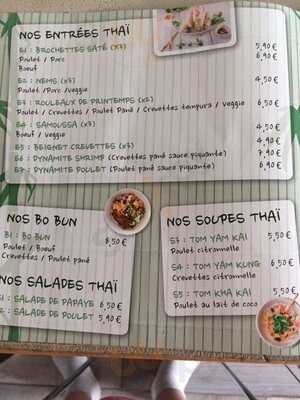 NOS ENTRÉES THAÏ
E1 : BROCHETTES SATÉ (X7) 5,90 €
Poulet / Porc 6,90 €
Boeuf
E2 : NEMS (X3) 4,50 €
Poulet /Porc /Veggie
E3 : ROULEAUX DE PRINTEMPS (X2) 6,50 €
Poulet / Crevettes / Poulet Pané / Crevettes tempura / Veggie
E4 : SAMOUSSA (X3) 4,50 €
Boeuf / Veggie
E5 : BEIGNET CREVETTES (X3) 4,90 €
E6 : DYNAMITE SHRIMP (Crevettes pané sauce piquante) 7,90 €
E7 : DYNAMITE POULET (Poulet pané sauce piquante) 6,90 €
NOS BO BUN
B1 : BO BUN 8,50 €
Poulet / Boeuf
Crevettes / Poulet pané
NOS SALADES THAÏ
S1 : SALADE DE PAPAYE 6,50 €
SALADE DE POULET 5,90 €
NOS SOUPES THAÏ
S3 : TOM YAM KAI 5,50 €
Poulet citronnelle
S4 : TOM YAM KUNG 6,50 €
Crevettes citronnelle
S5 : TOM KHA KAI 5,50 €
Poulet au lait de coco